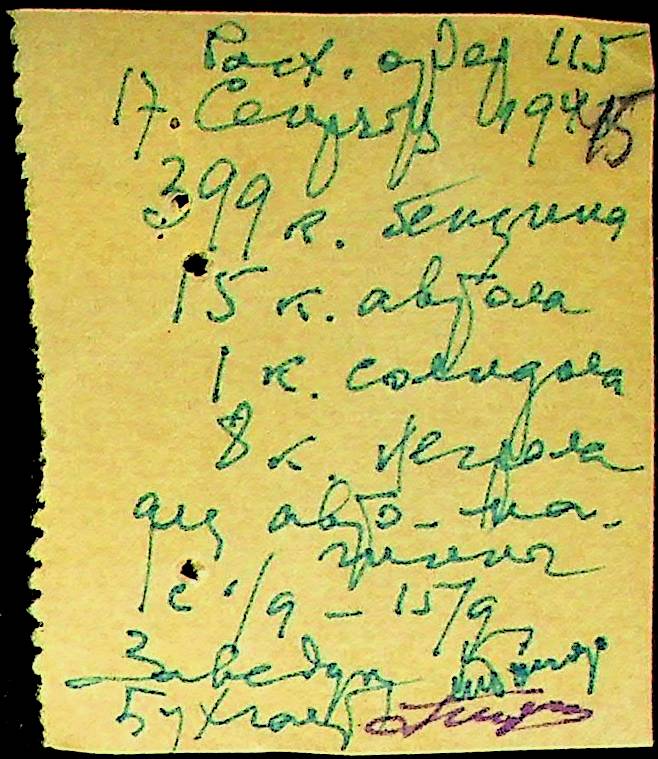 Расх. ордер 115
17. Сентября 1945
399 к. бензина
15 к. автола
1 к. солидола
8 к. негрола
для авто-ма-
шины
с 1/9 - 15/9
Заведущ
Бухгалт